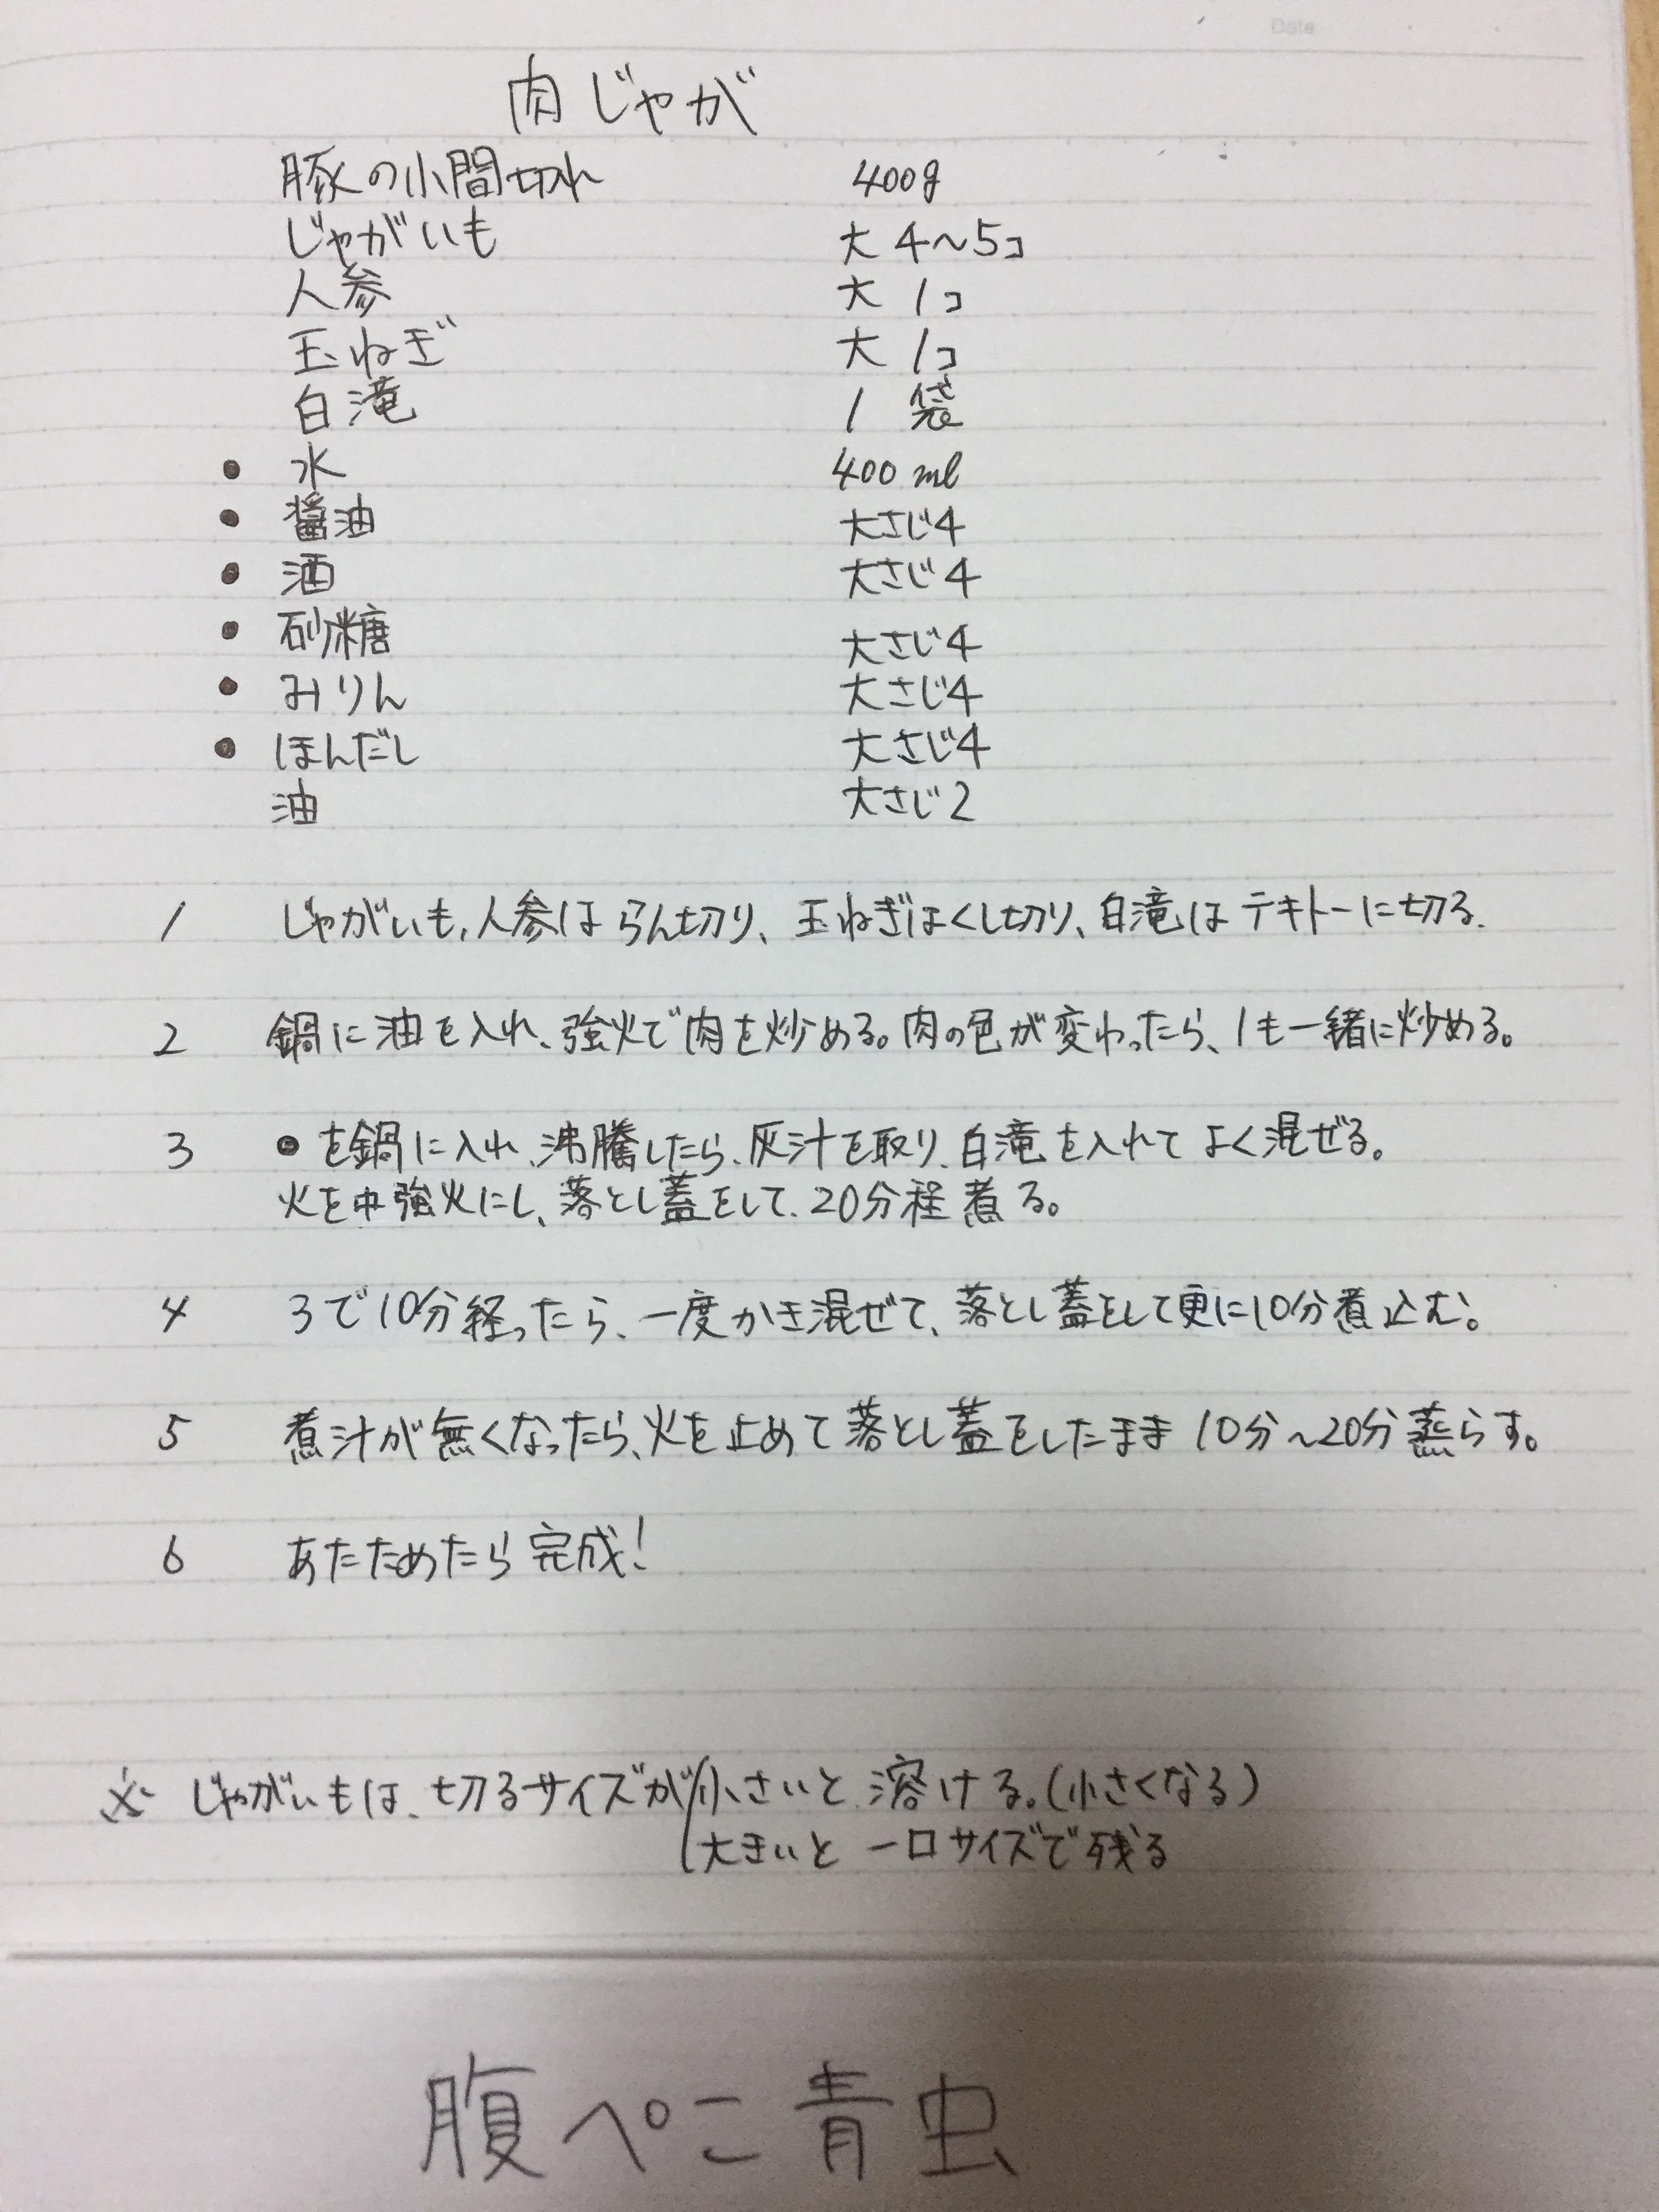 Date
肉じゃが
豚の小間切れ 400g
じゃがいも 大 4〜5コ
人参 大 1コ
玉ねぎ 大 1コ
白滝 1 袋
● 水 400 ml
● 醤油 大さじ4
● 酒 大さじ4
● 砂糖 大さじ4
● みりん 大さじ4
● ほんだし 大さじ4
油 大さじ2
1 じゃがいも、人参はらん切り、玉ねぎはくし切り、白滝はテキトーに切る.
2 鍋に油を入れ、強火で肉を炒める。肉の色が変わったら、1も一緒に炒める。
3 ●を鍋に入れ、沸騰したら、灰汁を取り、白滝を入れてよく混ぜる。
火を中強火にし、落とし蓋をして、20分程煮る。
4 3で10分経ったら、一度かき混ぜて、落とし蓋をして更に10分煮込む。
5 煮汁が無くなったら、火を止めて落とし蓋をしたまま10分〜20分蒸らす。
6 あたためたら完成!
※ じゃがいもは、切るサイズが小さいと溶ける。(小さくなる)
大きいと一口サイズで残る
腹ぺこ青虫